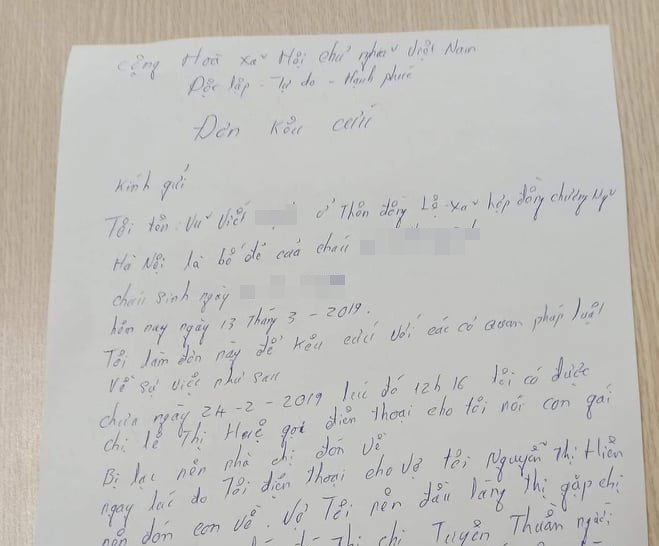 Cộng Hoà Xã Hội chủ nghĩa Việt Nam
Độc lập - Tự do - Hạnh phúc
Đơn kêu cứu
Kính gửi
Tôi tên: Vũ Viết ở Thôn đồng Lệ - xã hợp đồng chương Mỹ
Hà Nội là bố đẻ của cháu
cháu sinh ngày
hôm nay ngày 13 Tháng 3 - 2019.
Tôi làm đơn này để kêu cứu với các cơ quan pháp luật
Về sự việc như sau
chưa ngày 24 - 2 - 2019 lúc đó 12h 16 tôi có được
chị lê Thị Huệ gọi điển thoại cho tôi nói con gái
Bị lạc nên nhà chị đón về
ngay lúc do Tôi điện thoại cho vợ tôi Nguyễn Thị Hiền
nên đón con về. Vợ Tôi nên đầu làng thị gặp chị
Thị chị Tuyển Thuần ngồi